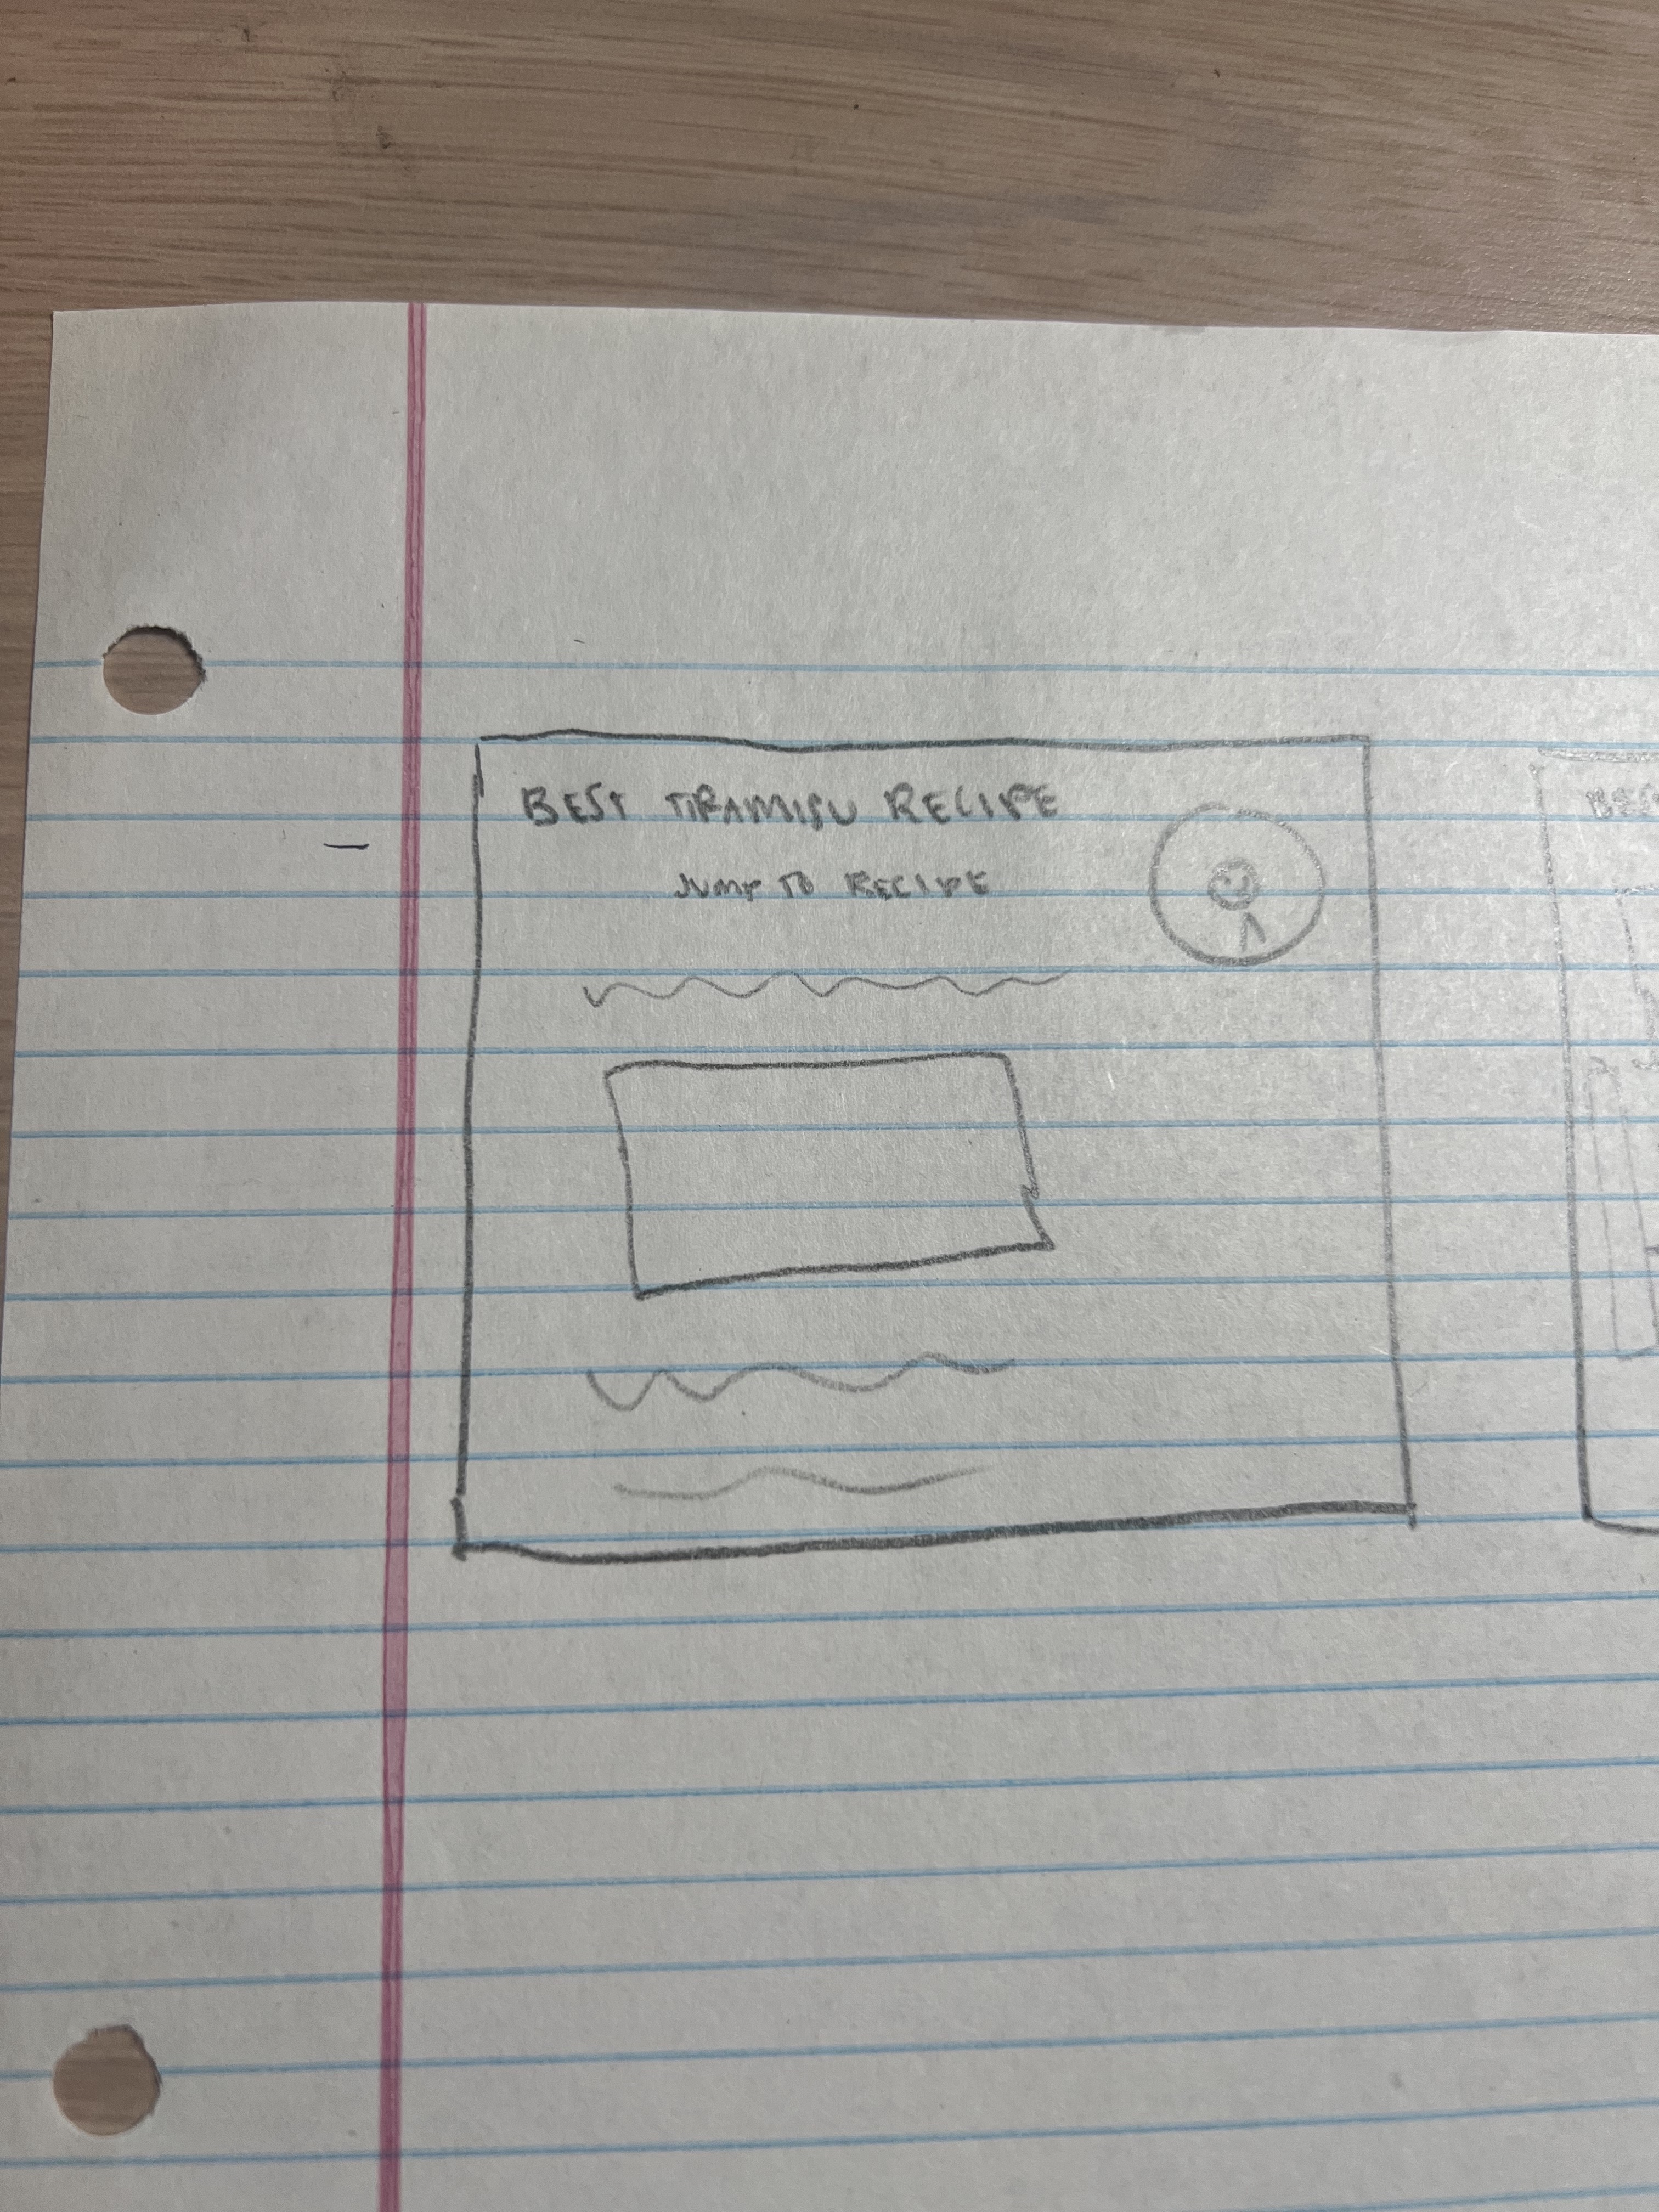 BEST TIRAMISU RECIPE
JUMP TO RECIPE